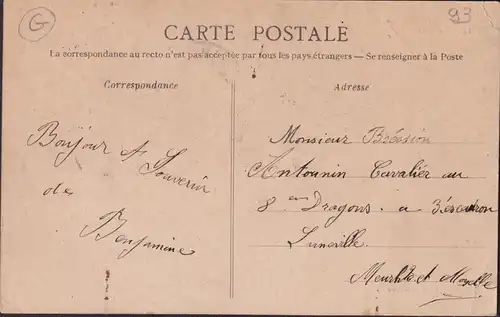 G
93
CARTE POSTALE
La correspondance au recto n'est pas acceptée par tous les pays étrangers — Se renseigner à la Poste
Correspondance
Adresse
Bonjour et Souvenir
de
Benjamine
Monsieur
Antounin Cavalier au
8 em Dragons. a 3 escadron
Luneville
Meurthe et Moselle